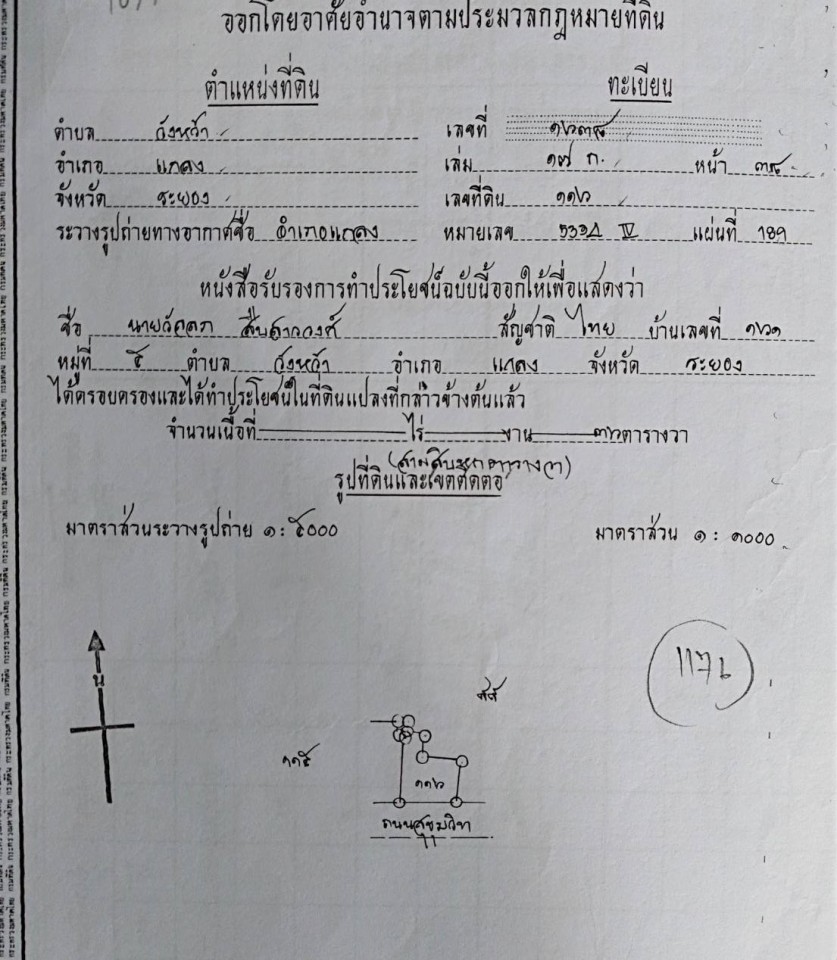 ออกโดยอาศัยอำนาจตามประมวลกฎหมายที่ดิน
ตำแหน่งที่ดิน ทะเบียน
ตำบล วังหว้า เลขที่ ๑๖๓๘
อำเภอ แกลง เล่ม ๑๗ ก. หน้า ๓๘
จังหวัด ระยอง เลขที่ดิน ๑๑๖
ระวางรูปถ่ายทางอากาศชื่อ อำเภอแกลง หมายเลข 5334 IV แผ่นที่ 189
หนังสือรับรองการทำประโยชน์ฉบับนี้ออกให้เพื่อแสดงว่า
ชื่อ นายวัลลภ สืบสาววงศ์ สัญชาติ ไทย บ้านเลขที่ ๑๖๑
หมู่ที่ ๕ ตำบล วังหว้า อำเภอ แกลง จังหวัด ระยอง
ได้ครอบครองและได้ทำประโยชน์ในที่ดินแปลงที่กล่าวข้างต้นแล้ว
จำนวนเนื้อที่ ไร่ งาน ๓๖ ตารางวา
(สามสิบหกตารางวา)
รูปที่ดินและเขตติดต่อ
มาตราส่วนระวางรูปถ่าย ๑ : ๕๐๐๐ มาตราส่วน ๑ : ๑๐๐๐
น
๑๑๕
๑๑๖
ถนนสุขุมวิท